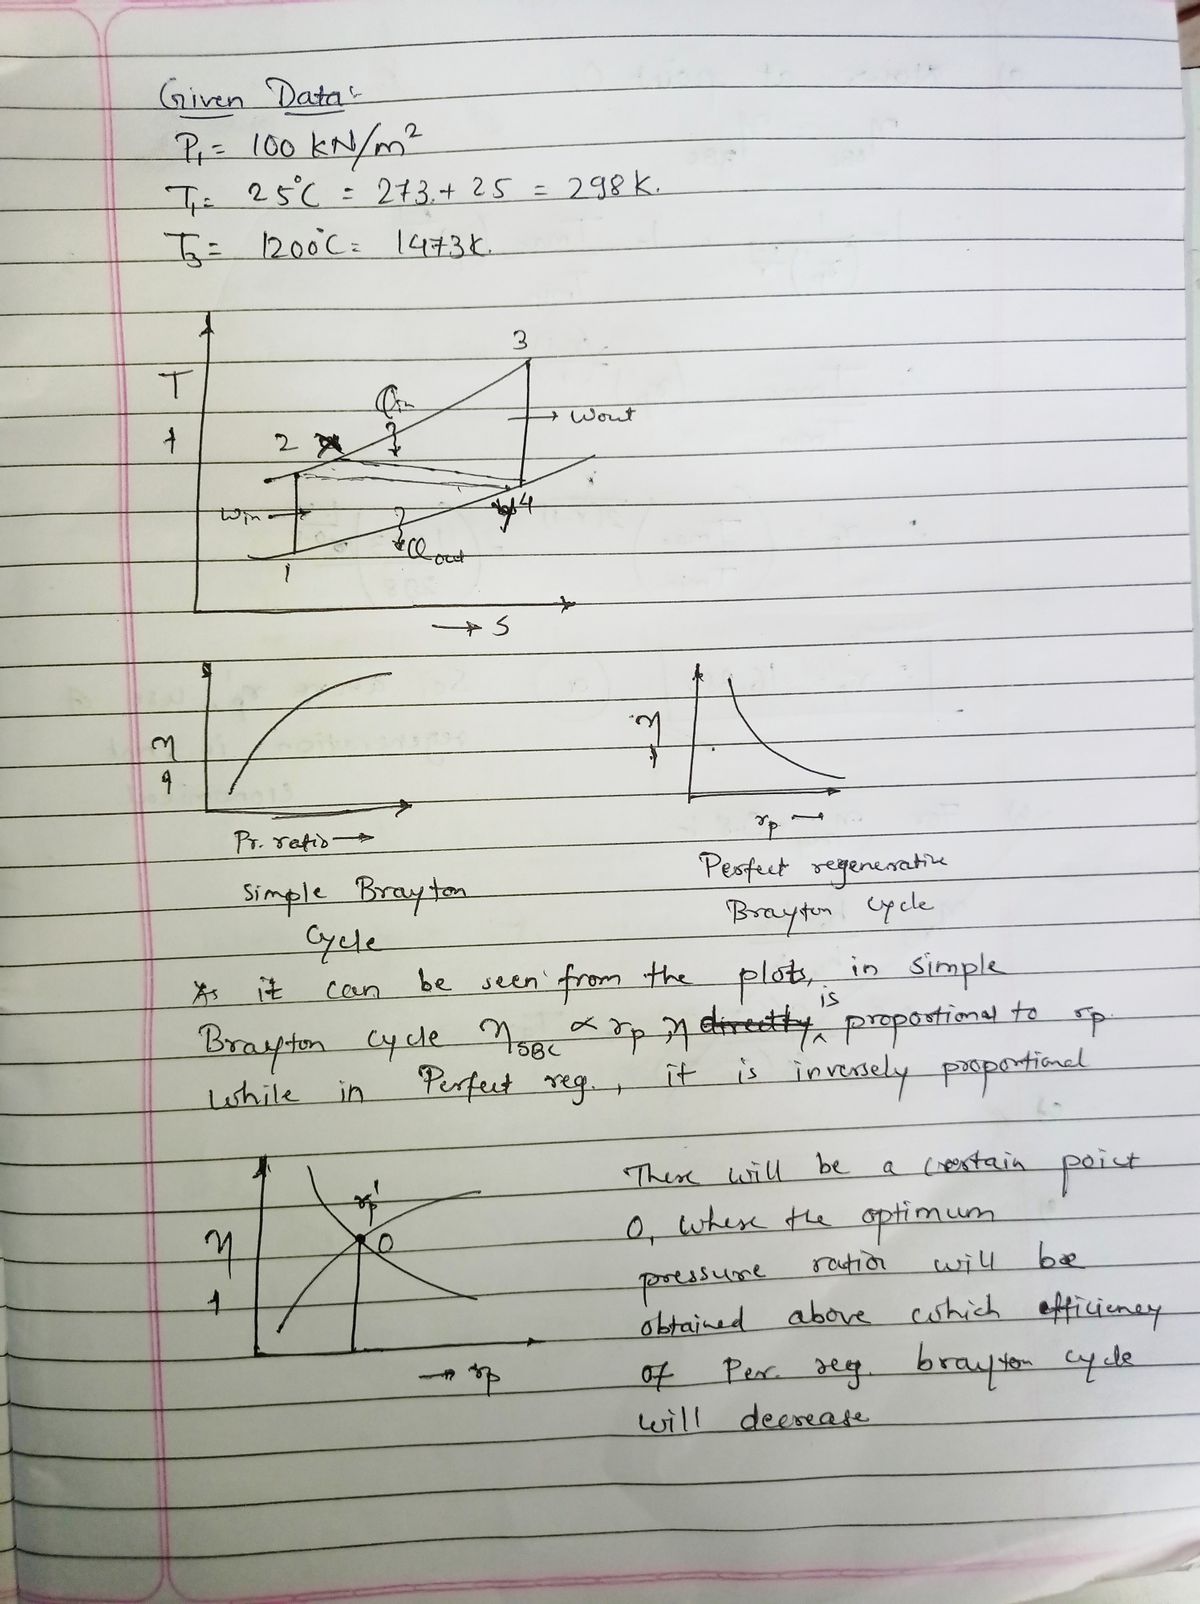 Given Data:
P₁ = 100 kN/m²
T₁ = 25°C = 273 + 25 = 298 K.
T₃ = 1200°C = 1473 K.
3
T
Qin
Wout
2
Win
4
Qout
1
S
η
η
Pr. ratio
rp
Simple Brayton
Cycle
Perfect regenerative
Brayton Cycle
As it can be seen from the plots, in simple
Brayton cycle ηSBC ∝ rp, η is proportional to rp
while in Perfect reg., it is inversely proportional
rp'
η
O
rp
There will be a certain poict
O, where the optimum
pressure ratio will be
obtained above which efficiency
of Per. reg. brayton cycle
will decrease